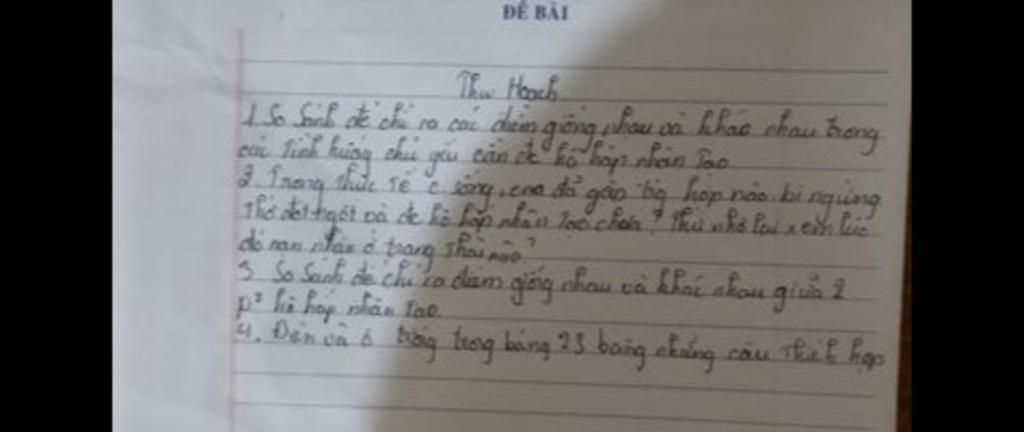 ĐỀ BÀI
Thu Hoạch
1 So Sánh để chỉ ra các điểm giống nhau và khác nhau trong
các tình huống chủ yếu cần đc hô hấp nhân tạo
2. Trong thực tế c sống, em đã gặp trg hợp nào bị ngừng
thở đột ngột và đc hô hấp nhân tạo chưa? Thử nhớ lại xem lúc
đó nạn nhân ở trạng thái nào?
3 So Sánh để chỉ ra điểm giống nhau và khác nhau giữa 2
p² hô hấp nhân tạo
4. Điền và ô trống trong bảng 23 bằng những câu thích hợp